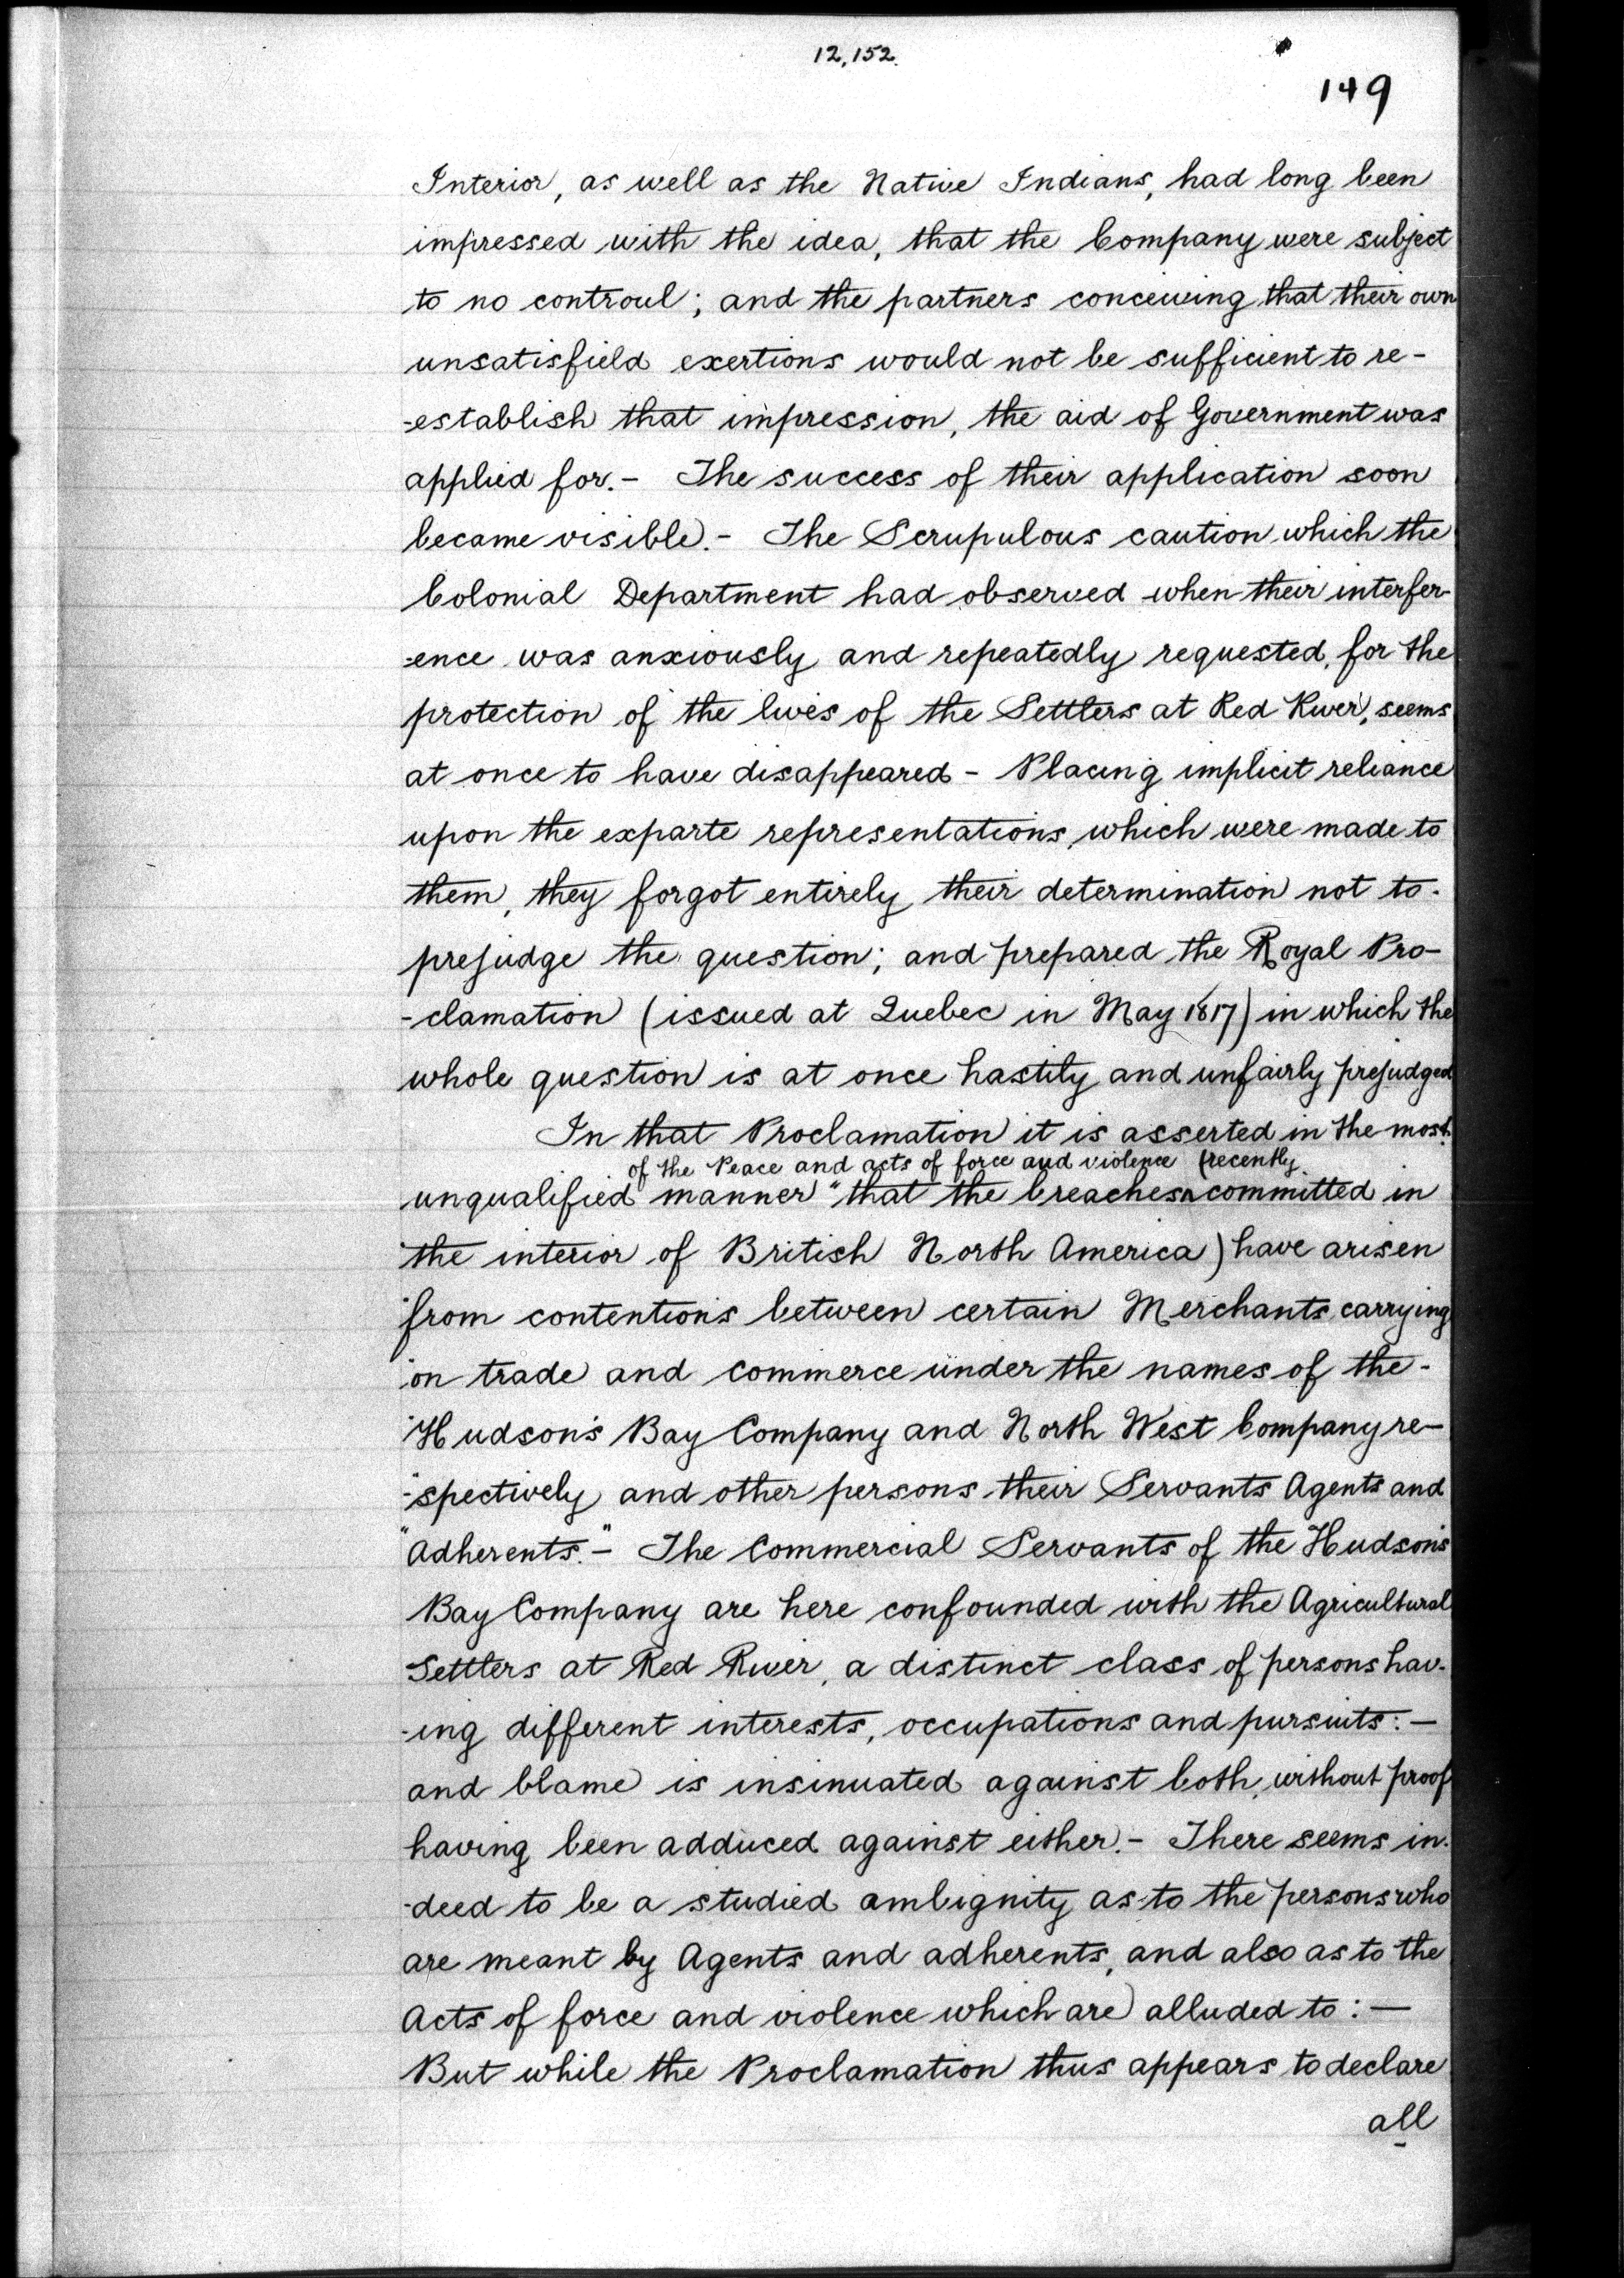 12,152.
149
Interior, as well as the Native Indians, had long been
impressed with the idea, that the Company were subject
to no controul; and the partners conceiving that their own
unsatisfield exertions would not be sufficient to re-
-establish that impression, the aid of Government was
applied for.- The success of their application soon
became visible.- The Scrupulous caution which the
Colonial Department had observed when their interfer-
-ence was anxiously and repeatedly requested, for the
protection of the lives of the Settlers at Red River, seems
at once to have disappeared - Placing implicit reliance
upon the exparte representations, which were made to
them, they forgot entirely their determination not to-
prejudge the question; and prepared the Royal Pro-
-clamation (issued at Quebec in May 1817) in which the
whole question is at once hastily and unfairly prejudged
In that Proclamation it is asserted in the most
of the Peace and acts of force and violence (recently
unqualified manner "that the breaches committed in
"the interior of British North America) have arisen
"from contentions between certain Merchants carrying
"on trade and commerce under the names of the-
"Hudson's Bay Company and North West Company re-
-"spectively and other persons their Servants Agents and
"Adherents."- The Commercial Servants of the Hudson's
Bay Company are here confounded with the Agricultural
Settlers at Red River, a distinct class of persons hav-
-ing different interests, occupations and pursuits:-
and blame is insinuated against both, without proof
having been adduced against either.- There seems in-
-deed to be a studied ambignity as to the persons who
are meant by Agents and adherents, and also as to the
Acts of force and violence which are alluded to:-
But while the Proclamation thus appears to declare
all